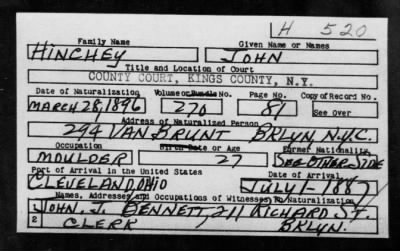 H 520
Family Name Given Name or Names
HINCHEY JOHN
Title and Location of Court
COUNTY COURT, KINGS COUNTY, N.Y.
Date of Naturalization Volume or Bundle No. Page No. Copy of Record No.
MARCH 28, 1896 270 81 See Over
Address of Naturalized Person
294 VAN BRUNT BKLYN. N.Y.C.
Occupation Birth Date or Age Former Nationality
MOULDER 27 SEE OTHER SIDE
Port of Arrival in the United States Date of Arrival
CLEVELAND, OHIO JULY 1-1887
Names, Addresses and Occupations of Witnesses To Naturalization
JOHN J. BENNETT, 211 RICHARD ST.
2 CLERK BKLYN.